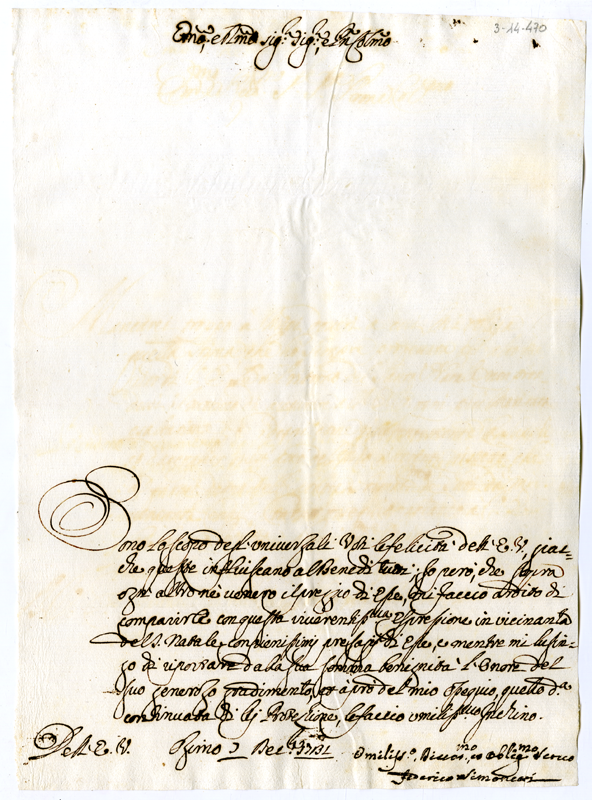 3-14-470
Emo, e Rmo Sigr. Sigr. e Pñe Colmo
Sono lo scopo dell'universali Voti le felicità dell'E. V., giac=
che queste influiscano al bene di tutti; Io però, che sopra
ogn'altro ne venero il preggio di Esse, mi faccio ardito di
comparirle con questa riverentissma espressione in vicinanza
del S. Natale con pienissimi presagi di Esse, e mentre mi lusin=
go di riportare dalla sua somma benignità l'Onore del
suo generoso gradimento, et a prò del mio ossequio, quello da
continuata di lej Protezione, le faccio umilissmo Inchino.
Dell'E. V. Osimo 7 Decbre 1731
Umilisso. Divotmo, et Obligmo Servo
Federico Simonetti